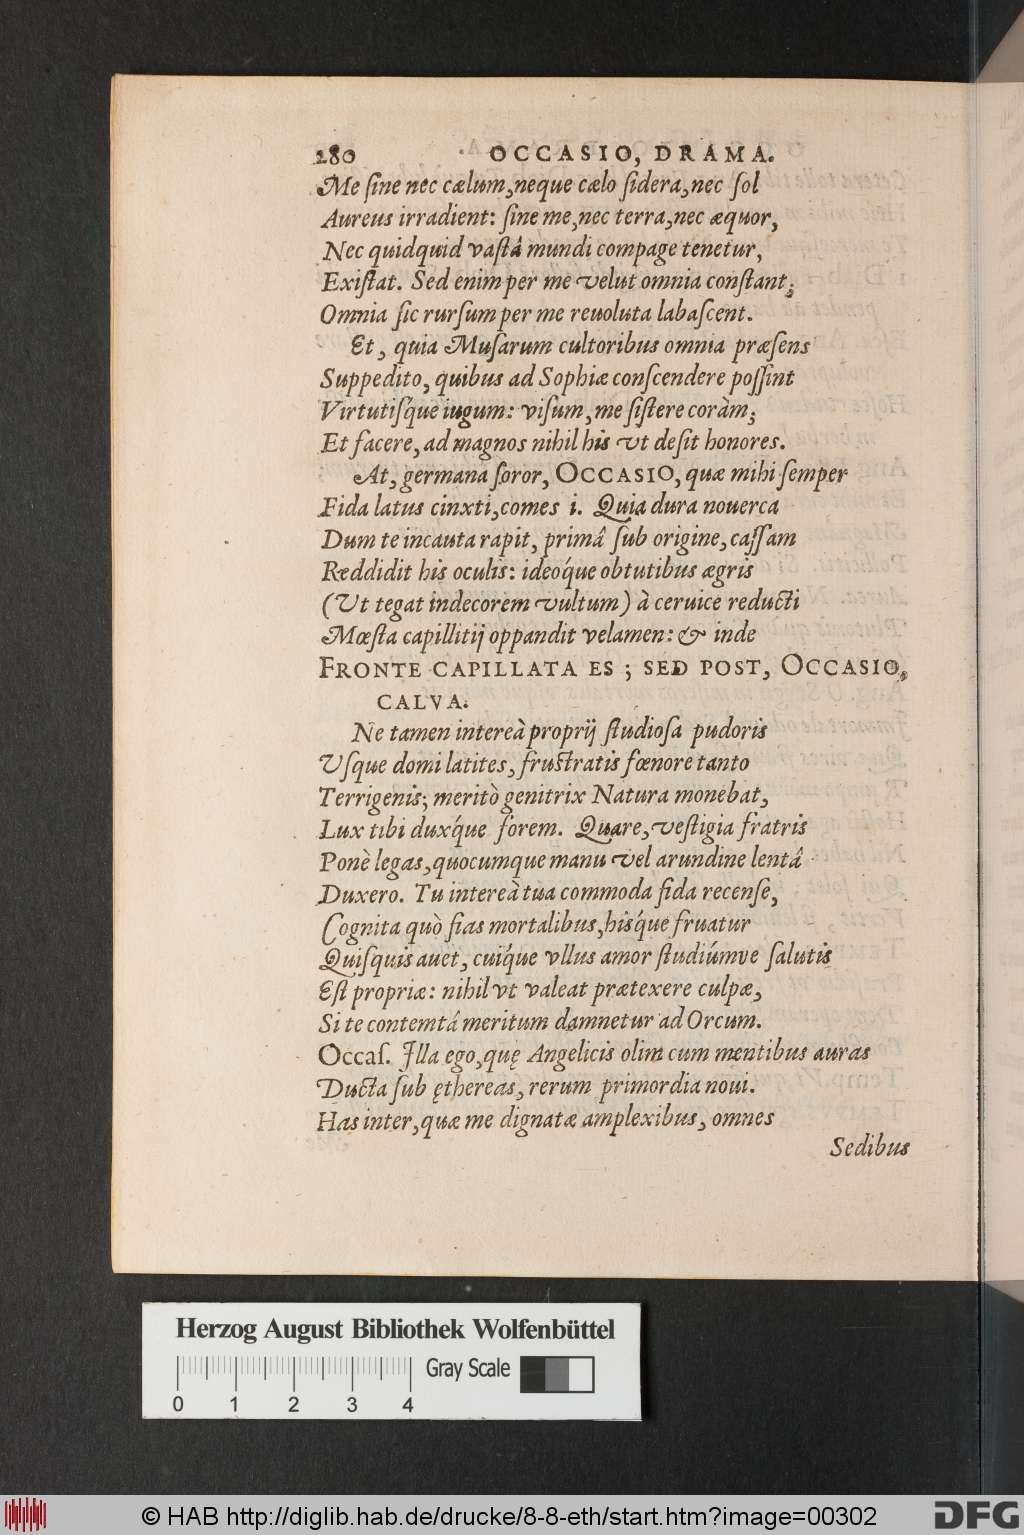 280 OCCASIO, DRAMA.
Me ſine nec cælum, neque cælo ſidera, nec ſol
Aureus irradient: ſine me, nec terra, nec æquor,
Nec quidquid vaſtâ mundi compage tenetur,
Exiſtat. Sed enim per me velut omnia conſtant;
Omnia ſic rurſum per me reuoluta labaſcent.
Et, quia Muſarum cultoribus omnia præſens
Suppedito, quibus ad Sophiæ conſcendere poſſint
Virtutiſq́ue iugum: viſum, me ſiſtere coràm;
Et facere, ad magnos nihil his vt deſit honores.
At, germana ſoror, OCCASIO, quæ mihi ſemper
Fida latus cinxti, comes i. Quia dura nouerca
Dum te incauta rapit, primâ ſub origine, caſſam
Reddidit his oculis: ideoq́ue obtutibus ægris
(Vt tegat indecorem vultum) à ceruice reducti
Mœſta capillitij oppandit velamen: & inde
FRONTE CAPILLATA ES ; SED POST, OCCASIO,
CALVA.
Ne tamen intereà proprij ſtudioſa pudoris
Vſque domi latites, fruſtratis fœnore tanto
Terrigenis; meritò genitrix Natura monebat,
Lux tibi duxq́ue forem. Quare, veſtigia fratris
Ponè legas, quocumque manu vel arundine lentâ
Duxero. Tu intereà tua commoda fida recenſe,
Cognita quò fias mortalibus, hiſq́ue fruatur
Quiſquis auet, cuiq́ue vllus amor ſtudiúmve ſalutis
Eſt propriæ: nihil vt valeat prætexere culpæ,
Si te contemtâ meritum damnetur ad Orcum.
Occaſ. Illa ego, quę Angelicis olim cum mentibus auras
Ducta ſub ęthereas, rerum primordia noui.
Has inter, quæ me dignatæ amplexibus, omnes
Sedibus
Herzog August Bibliothek Wolfenbüttel
Gray Scale
0 1 2 3 4
© HAB http://diglib.hab.de/drucke/8-8-eth/start.htm?image=00302
DFG